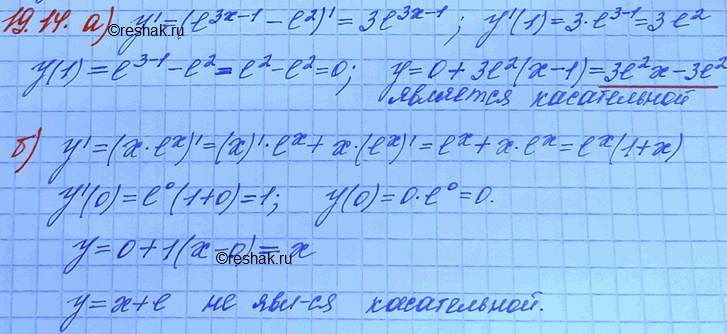 19.14. а) y' = (e^{3x-1} - e^2)' = 3e^{3x-1}; y'(1) = 3·e^{3-1} = 3e^2
©reshak.ru
y(1) = e^{3-1} - e^2 = e^2 - e^2 = 0; y = 0 + 3e^2(x-1) = 3e^2x - 3e^2
является касательной
б) y' = (x·e^x)' = (x)'·e^x + x·(e^x)' = e^x + x·e^x = e^x(1+x)
y'(0) = e^0(1+0) = 1; y(0) = 0·e^0 = 0.
y = 0 + 1(x-0) = x
©reshak.ru
y = x+e не явл-ся касательной.